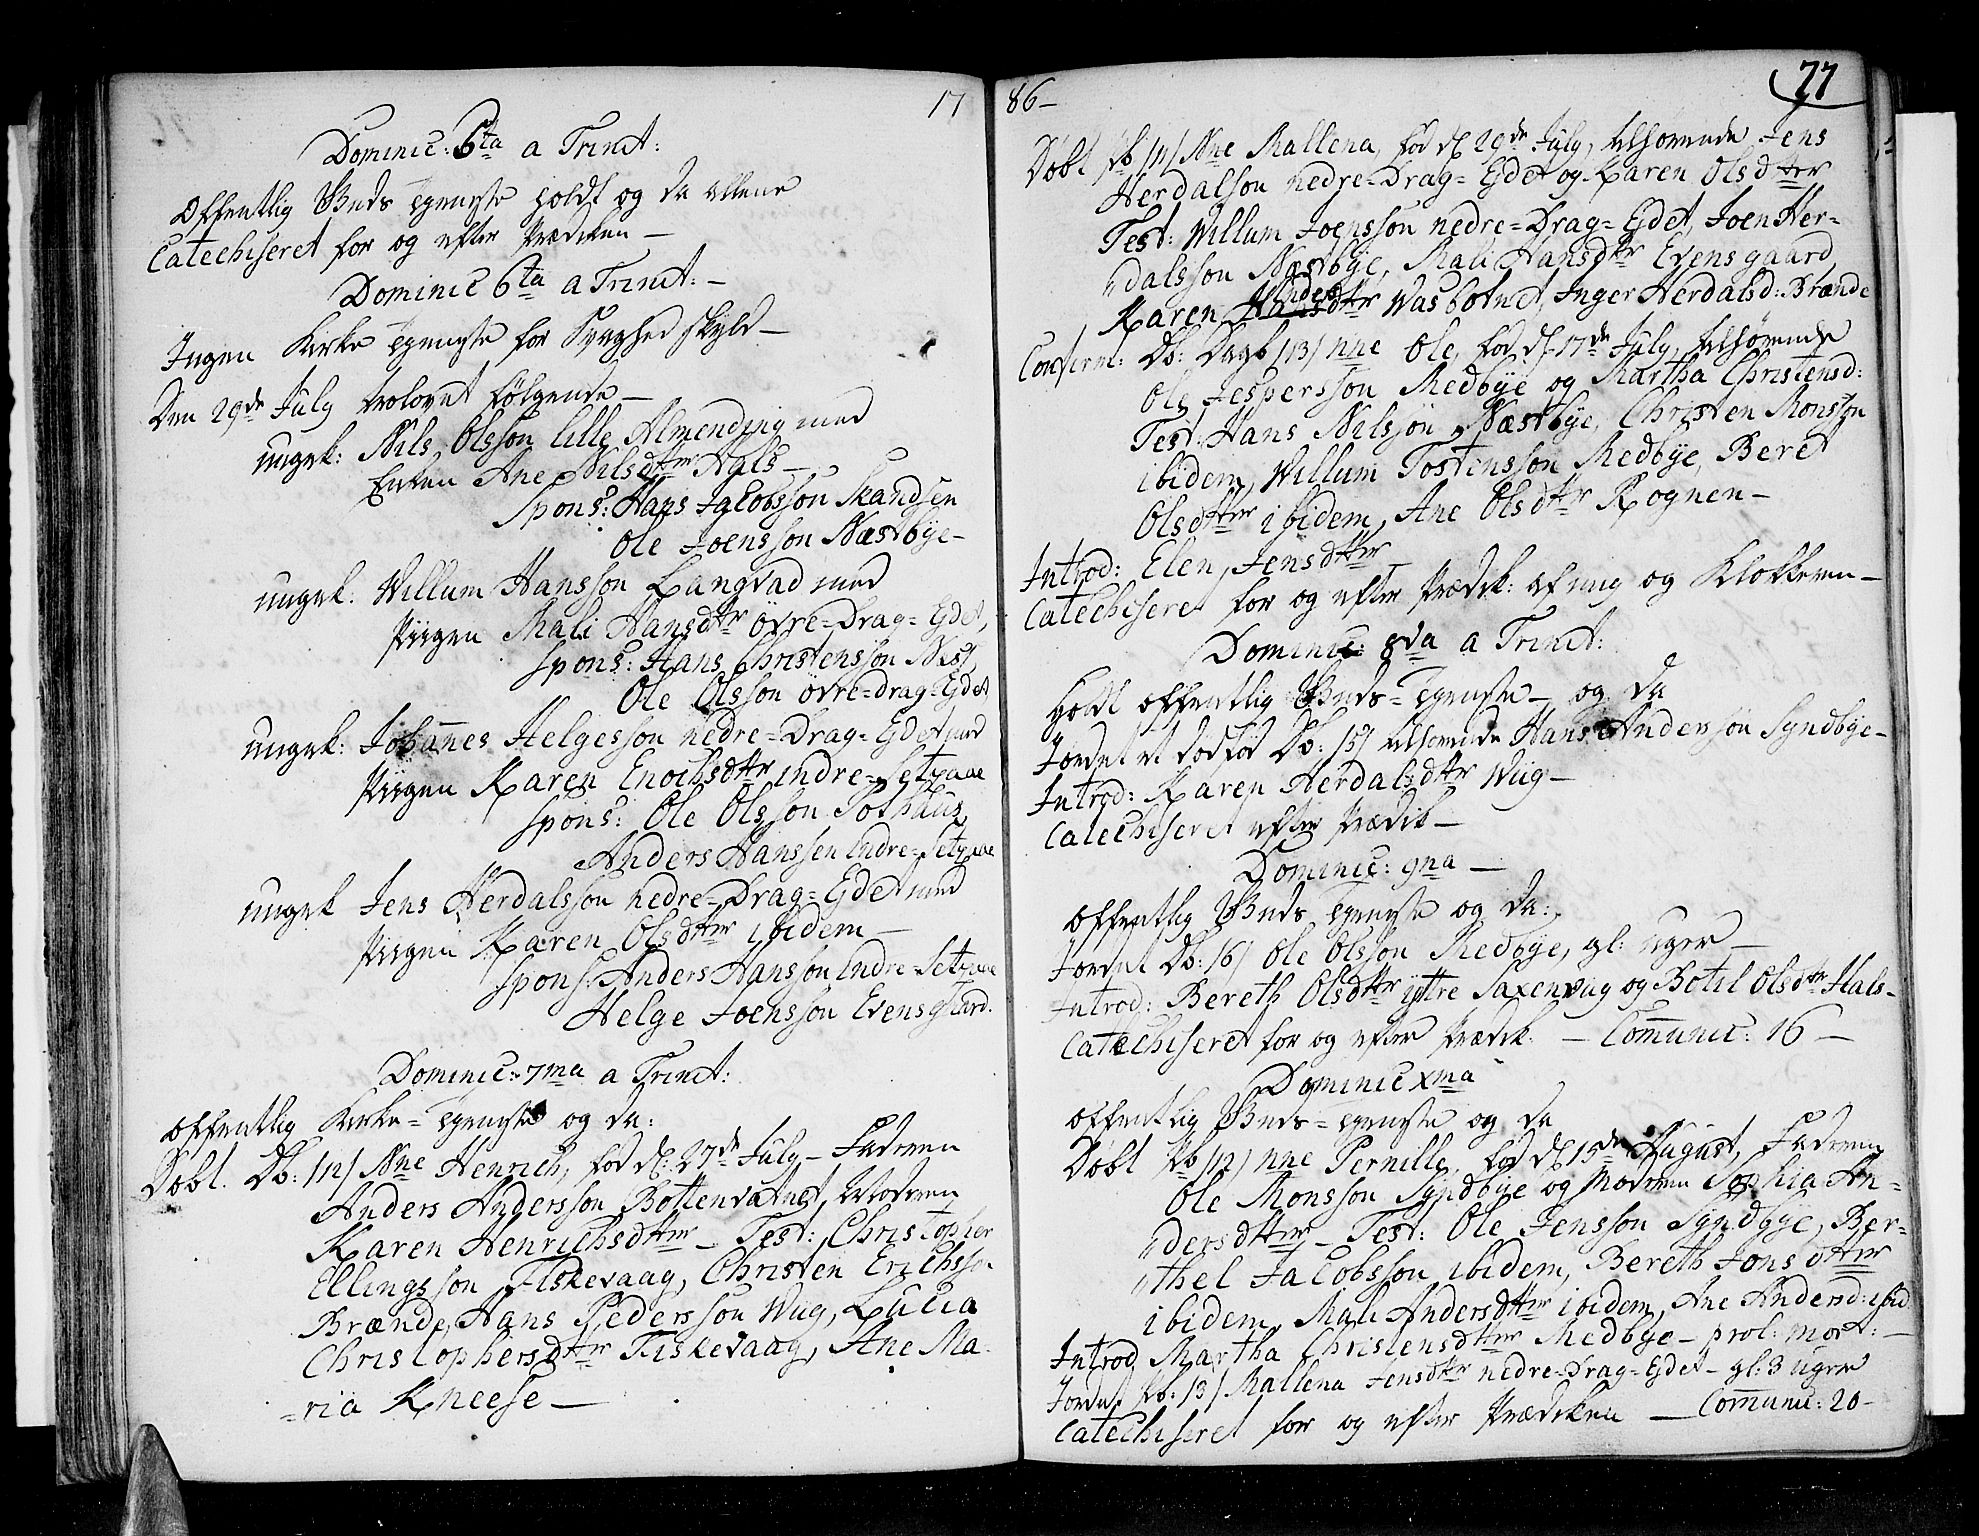 17
Dominic: 6ta a Trinit:
Offentlig Guds Tjeneste holdt og da allene
Catechiseret for og efter Prædiken —
Dominic 6ta a Trinit: —
Ingen Kirke Tjeneste for Svaghed skyld —
Den 29de July trolovet følgende —
ungk: Nils Olsson lille Almending med
Enken Ane Nilsdtter Hals —
Spons: Hans Jacobsson Skandsen
Ole Joensson Næstbye —
ungk: Willum Hansson Langvad med
Piigen Mali Hansdtr øvre=Drag=Ejdet,
Spons: Hans Christensson
Ole Olsson øvre=drag=Ejdet
ungk: Johannes Helgesson nedre=Drag=Ejdet med
Piigen Karen Enochsdtter indre=Setvaae
Spons: Ole Olsson Pothuus
Anders Hanssen Indre=Setvaae
ungk Jens Herdalsson nedre=Drag=Ejdet med
Piigen Karen Olsdtter ibidem —
Spons: Anders Hansson Indre=Setvaae
Helge Joensson Evensgaard.
Dominic: 7ma a Trinit:
Offentlig Kirke=Tjeneste og da:
Døbt. Db: /12/ Nne Henrich, fød d: 27de July — Faderen
Anders Andersson Bottenvatnet, Moderen
Karen Henrichsdtter — Test: Christopher
Ellingsson Fiskevaag, Christen Erichsson
Brænde, Hans Pedersson Wiig, Lucia
Christophersdtter Fiskevaag, Ane Ma-
=ria Kneese —
86 —
77
Døbt Pb /11/ Nne Mallena, fød d 29de July, tilhørende Jens
Herdalson nedre=Drag=Ejdet og Karen Olsdtter
Test: Willum Joensson nedre=Drag=Ejdet, Joen Her-
"dalsson Næstbye, Mali Hansdtr Evensgaard,
Karen dtr Wasbotnet, Inger Herdalsd: Brænde
Confirm: Db: Dagb /13/ nne Ole, fød d. 17de July, tilhørende
Ole Jespersson Medbye og Martha Christensd:
Test: Hans Nilsson Næstbye, Christen Monsson
ibidem, Willum Tostensson Medbye, Beret
Olsdtter ibidem, Ane Olsdtr Rognen —
Introd: Elen Jensdtter
Catechiseret for og efter Prædik: af mig og Klokkeren —
Dominic: 8va a Trinit:
Holdt offentlig Guds=Tjeneste — og da
Jordet et dødfød Db: /5/ tilhørende Hans Andersson Syndbye —
Introd: Karen Herdalsdtr Wiig —
Catechiseret efter Prædik —
Dominic: 9na —
Offentlig Guds Tjeneste og da:
Jordet Db: /6/ Ole Olsson Medbye, gl: uger —
Introd: Bereth Olsdtr ÿttre Saxenvag og Botil Olsdtr Hals —
Catechiseret for og efter Prædik. — Communic: 16 —
Dominic xma
Offentlig Guds=Tjeneste og da
Døbt Pb /12/ nne Pernille, fød d 15de August, Faderen
Ole Monsson Syndbye og Moderen Sophia An=
"dersdtter — Test: Ole Jensson Syndbye, Ber=
"thel Jacobsson ibidem, Bereth Jonsdtter
ibidem, Mali Andersdtter ibidem, Ane Andersd: ibid
Introd Martha Christensdtter Medbye — prol: mort: —
Jordet Pb: /3/ Mallena Jensdtr nedre=Drag=Ejdet — gl: 3 uger
Catechiseret for og efter Prædiken — Communic: 20 —